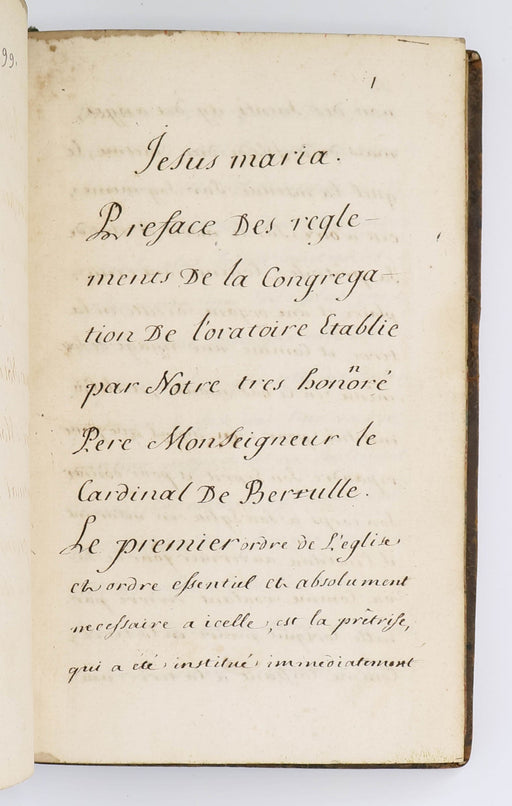 99.
1
Jesus maria.
Preface Des regle-
ments De la Congrega-
tion De l'oratoire Etablie
par Notre tres honoré
Pere Monseigneur le
Cardinal De Berulle.
Le premier ordre de L'eglise
et ordre essentiel et absolument
necessaire a icelle, est la prêtrise,
qui a été institué immediatement